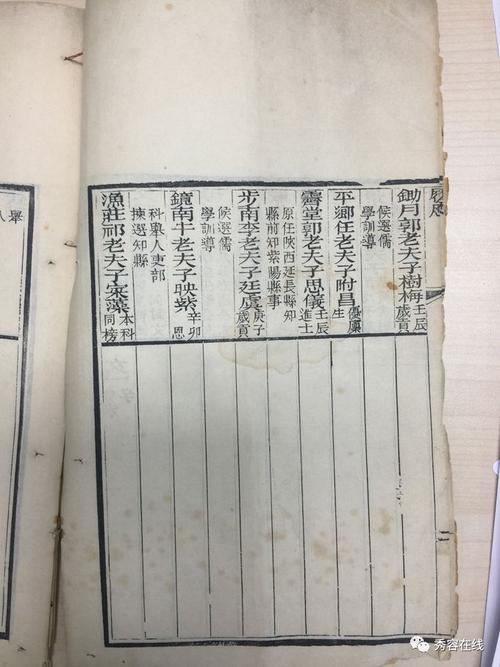 履歷
鋤月郭老夫子樹梅 壬辰
歲貢
候選儒
學訓導
平卿任老夫子附昌 優廩
生
霽堂郭老夫子思儀 壬辰
進士
原任陝西延長縣知
縣前知紫陽縣事
步南李老夫子廷虞 庚子
歲貢
候選儒
學訓導
鏡南牛老夫子映紫 辛卯
恩
科舉人吏部
揀選知縣
漁莊祁老夫子宷藻 本科
同榜
二
舉
秀容在线